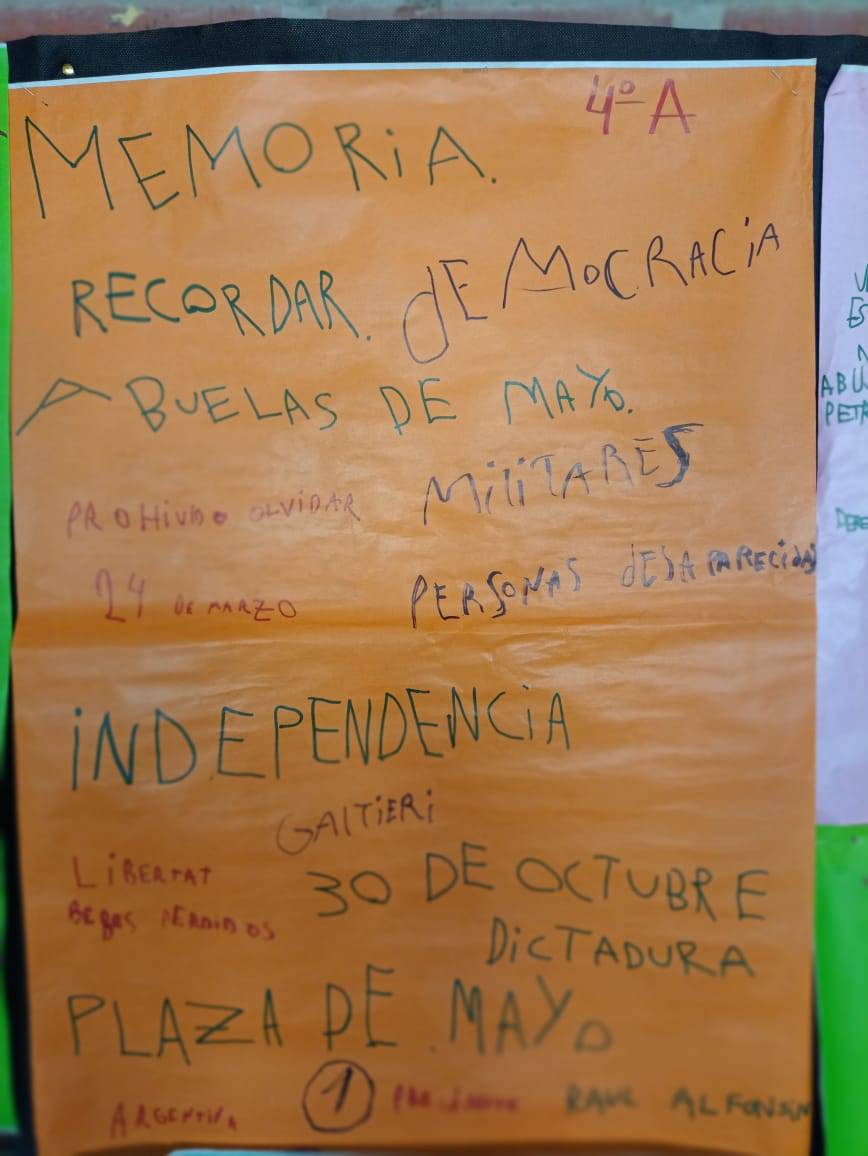 4º A
MEMORiA.
RECORDAR. dEMOCRACiA
ABUELAS DE MAYO.
PROHIVIDO OLVIDAR MiLiTARES
24 DE MARZO PERSONAS dESAPARECidAS
iNDEPENDENCiA
GALTiERi
LiBERTAT 30 DE OCTUBRE
BEBES PERDIDOS DiCTADURA
PLAZA DE MAYO
ARGENTINA 1 RAUL ALFONSIN
ABU
PETR
DERE